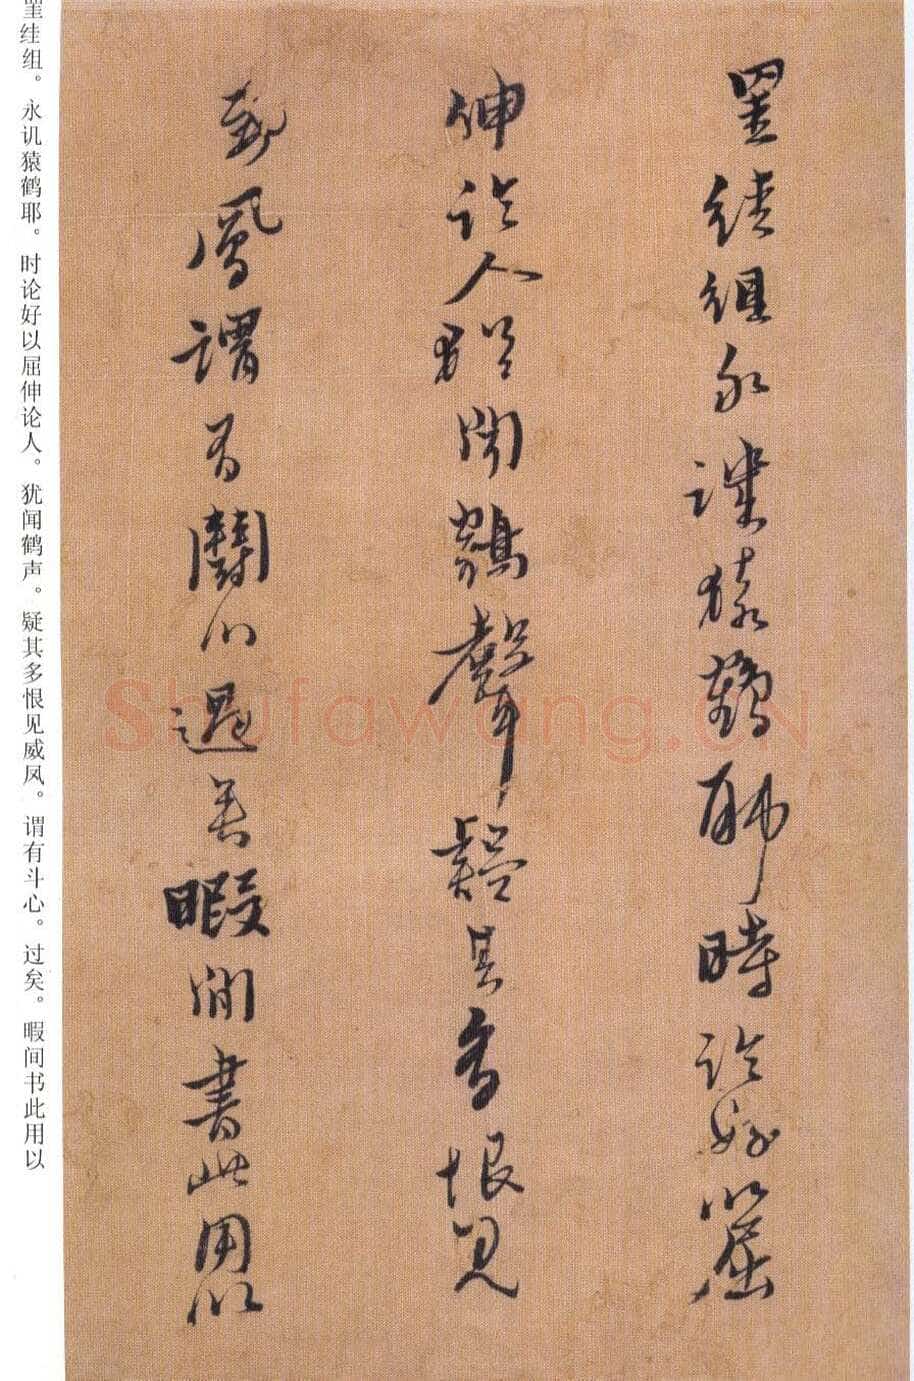 罣絓組永譏猿鶴耶時論好以屈
伸論人猶聞鶴聲疑其多恨見
威鳳謂有鬬心過矣暇間書此用以
罣絓组。永讥猿鹤耶。时论好以屈伸论人。犹闻鹤声。疑其多恨见威凤。谓有斗心。过矣。暇间书此用以
Shufawang.CN